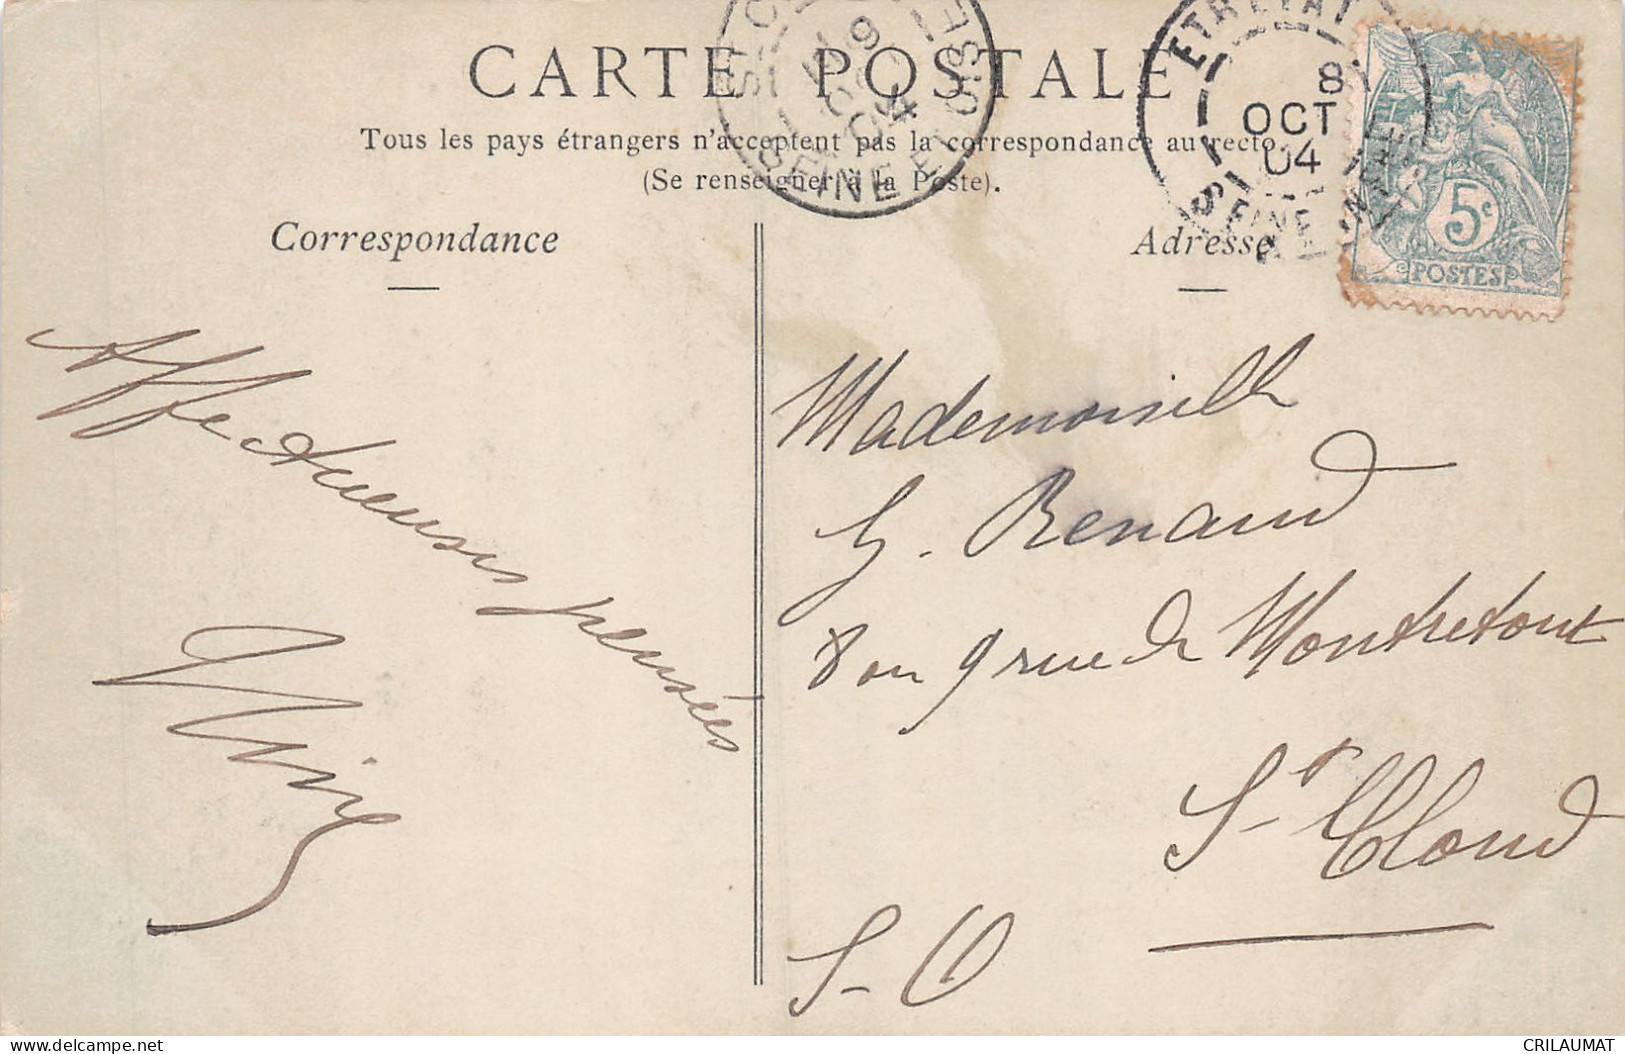 CARTE POSTALE
Tous les pays étrangers n'acceptent pas la correspondance au recto.
(Se renseigner à la Poste).
Correspondance
Adresse
ST CLOUD
9
OCT
04
SEINE ET OISE
ETRETAT
8
OCT
04
SEINE INFRE
5c
POSTES
Affectueuses pensées
Mademoiselle
G. Renaud
8 ou 9 rue de Montretout
St Cloud
S-O
delcampe.net
CRILAUMAT